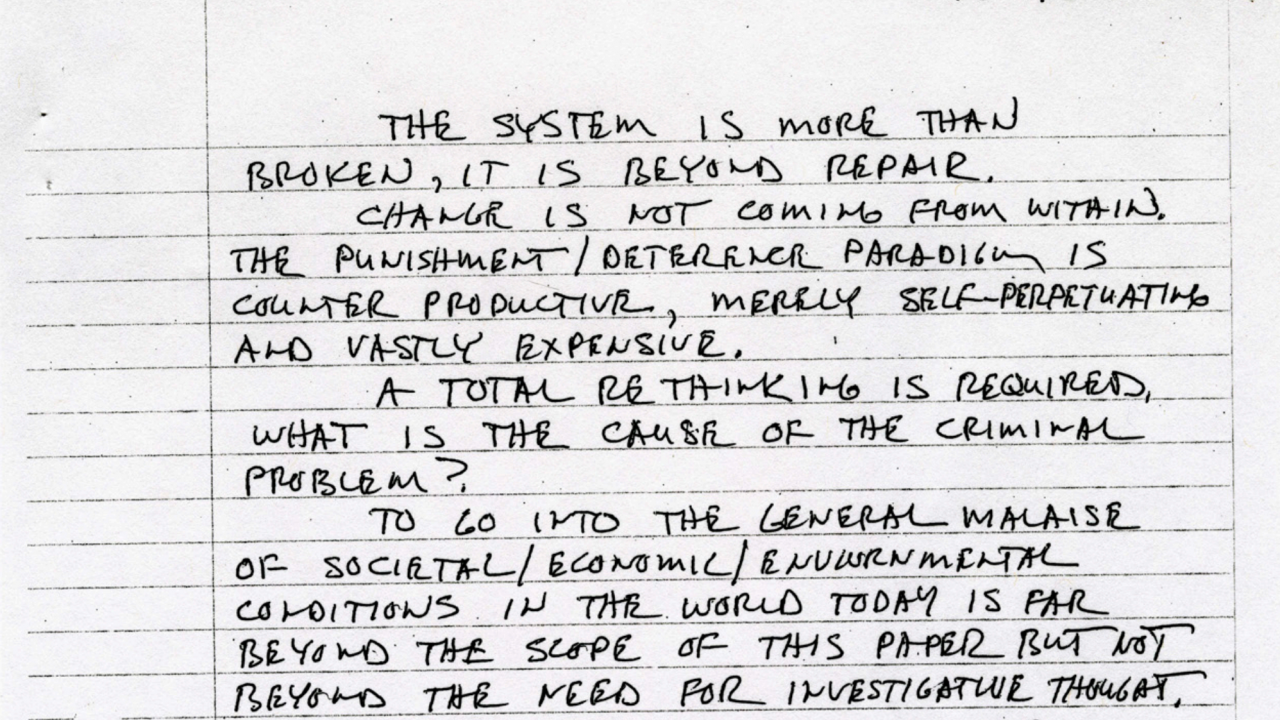 THE SYSTEM IS MORE THAN
BROKEN, IT IS BEYOND REPAIR.
CHANGE IS NOT COMING FROM WITHIN.
THE PUNISHMENT/DETERENCE PARADIGM IS
COUNTER PRODUCTIVE, MERELY SELF-PERPETUATING
AND VASTLY EXPENSIVE.
A TOTAL RE THINKING IS REQUIRED.
WHAT IS THE CAUSE OF THE CRIMINAL
PROBLEM?
TO GO INTO THE GENERAL MALAISE
OF SOCIETAL/ECONOMIC/ENVIORNMENTAL
CONDITIONS IN THE WORLD TODAY IS FAR
BEYOND THE SCOPE OF THIS PAPER BUT NOT
BEYOND THE NEED FOR INVESTIGATIVE THOUGHT.